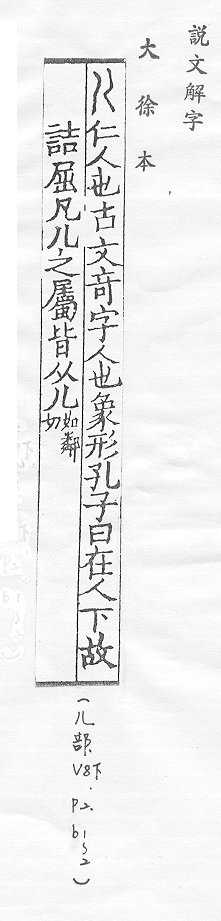 説文解字
大徐本
儿仁人也古文奇字人也象形孔子曰在人下故
詰屈凡儿之屬皆从儿如鄰切
(儿部.V8下.
P2.
b1~2)